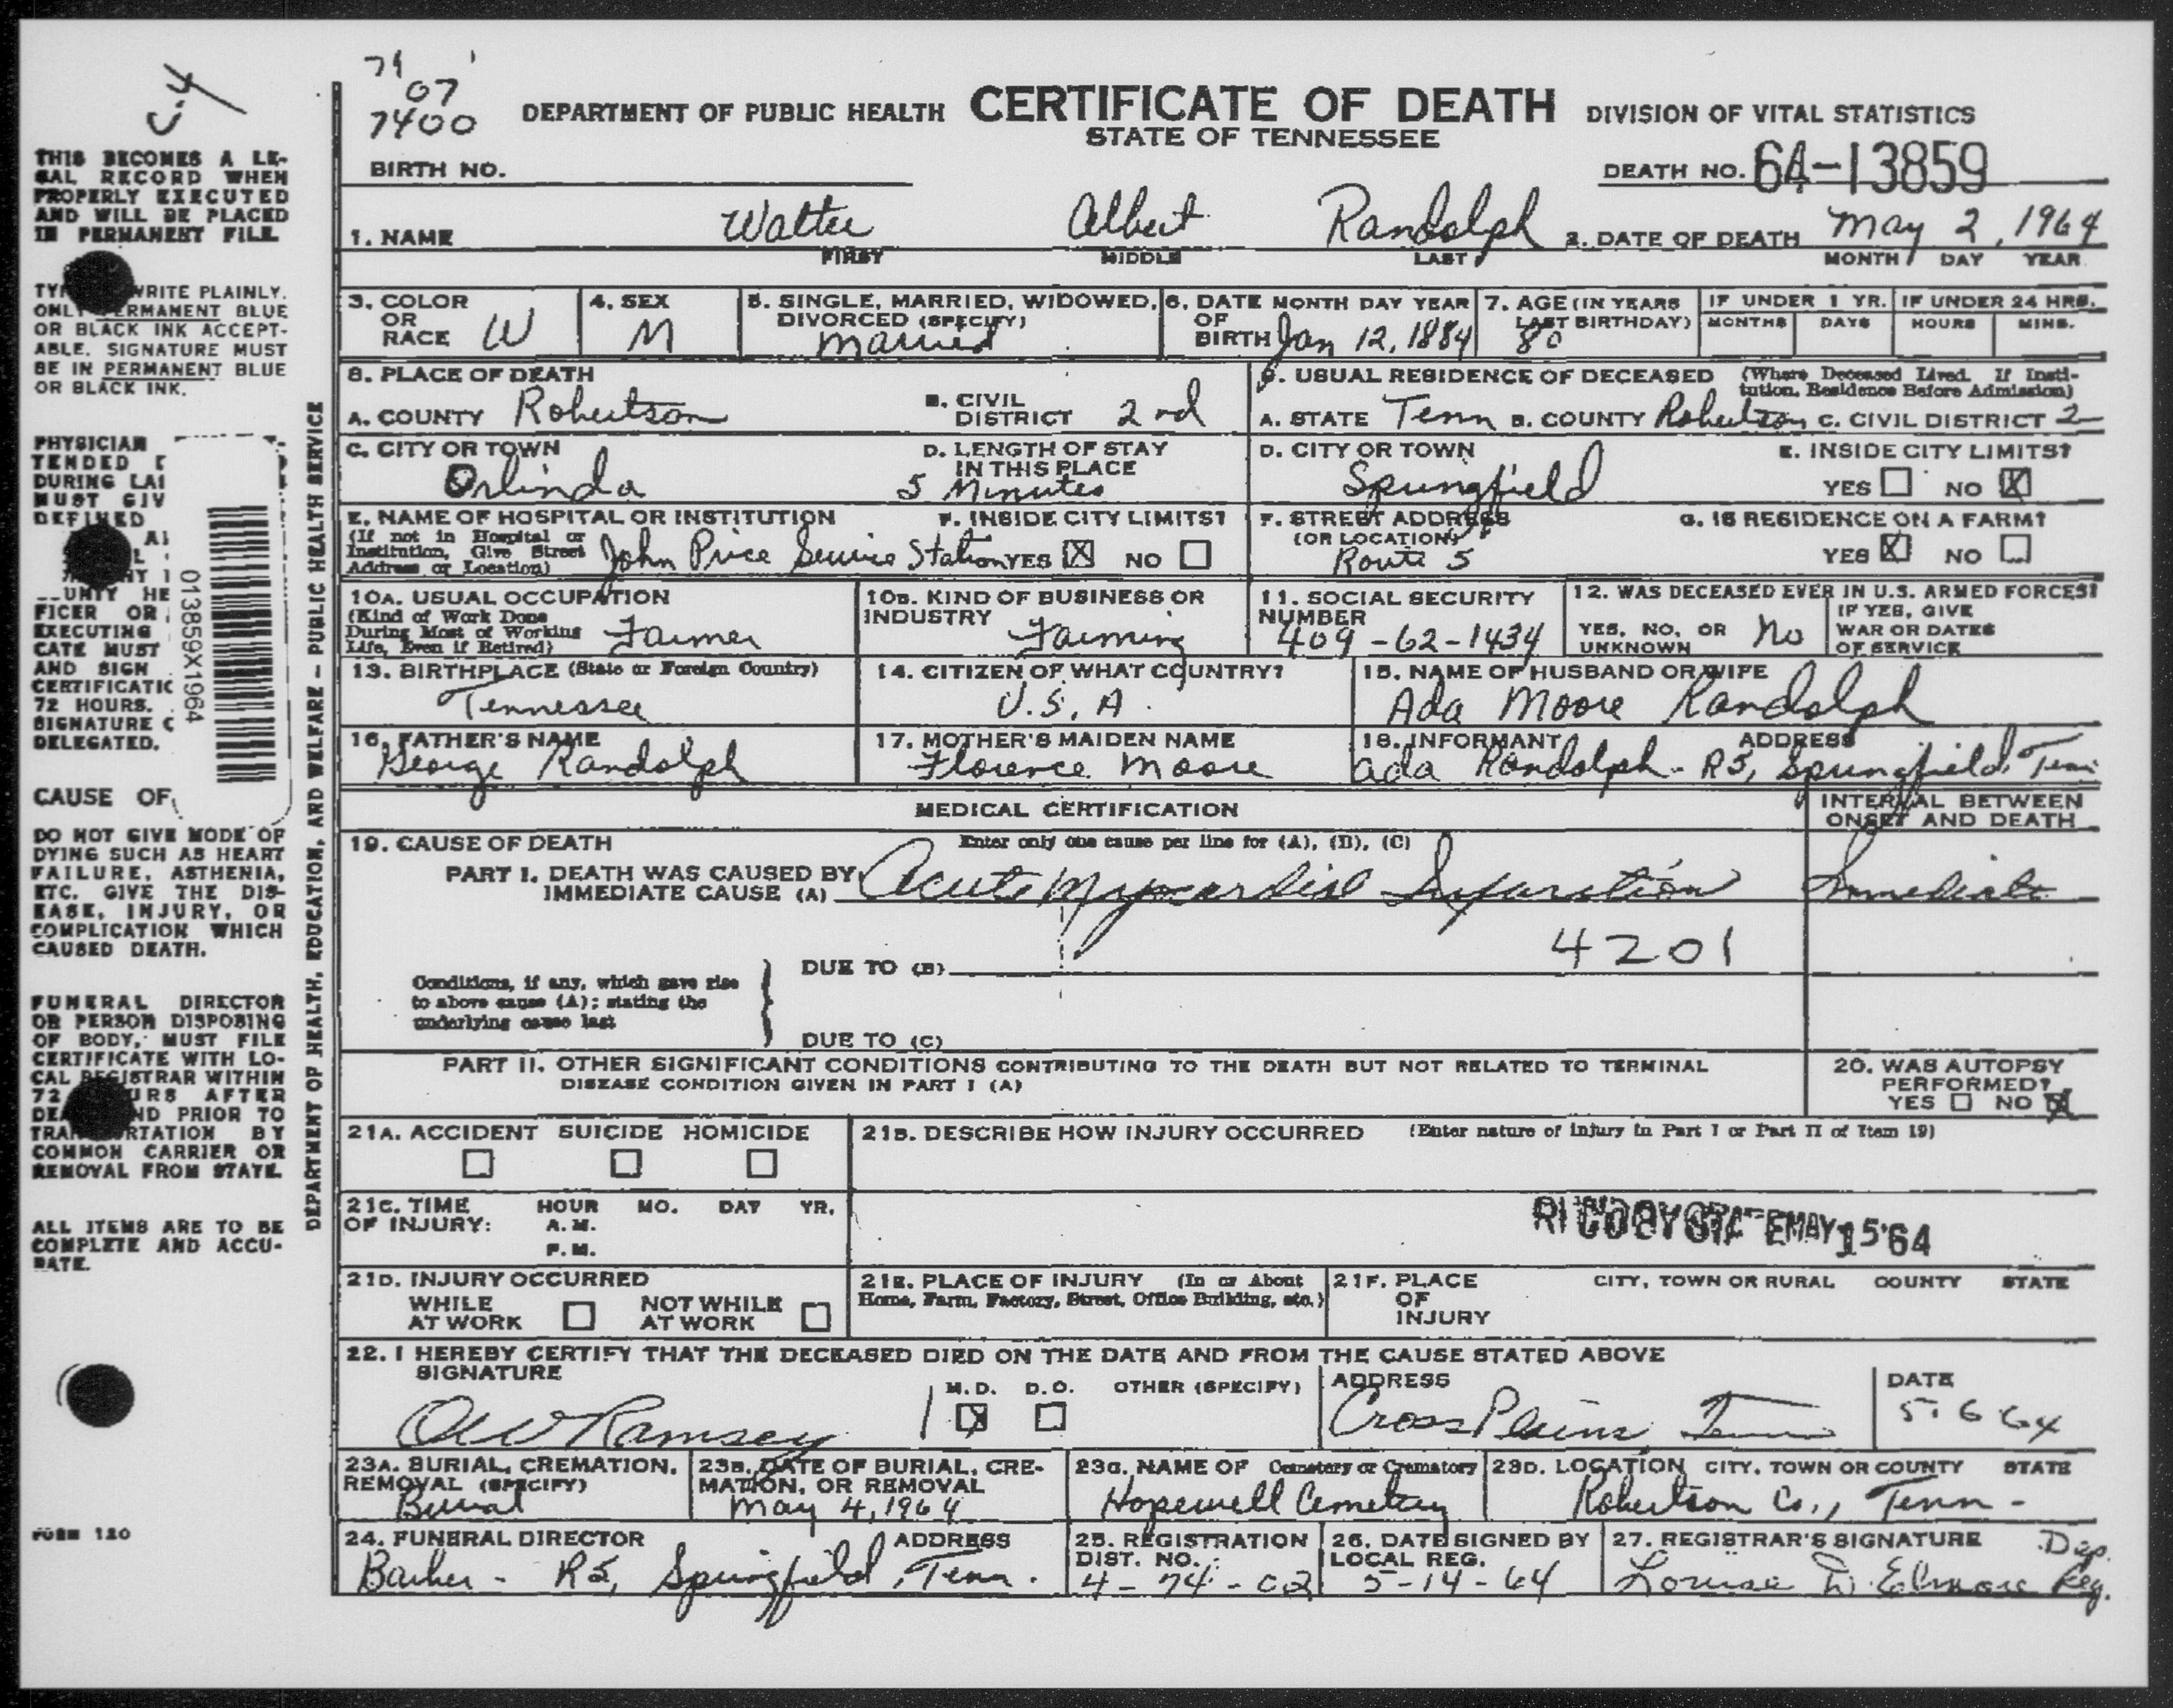 C-4
71
07
7400
DEPARTMENT OF PUBLIC HEALTH CERTIFICATE OF DEATH DIVISION OF VITAL STATISTICS
STATE OF TENNESSEE
BIRTH NO.
DEATH NO. 64-13859
1. NAME Walter Albert Randolph 2. DATE OF DEATH May 2, 1964
FIRST MIDDLE LAST MONTH DAY YEAR
3. COLOR OR RACE W
4. SEX M
5. SINGLE, MARRIED, WIDOWED, DIVORCED (SPECIFY) Married
6. DATE OF BIRTH MONTH DAY YEAR Jan 12, 1884
7. AGE (IN YEARS LAST BIRTHDAY) 80
IF UNDER 1 YR. MONTHS DAYS
IF UNDER 24 HRS. HOURS MINS.
8. PLACE OF DEATH
A. COUNTY Robertson
B. CIVIL DISTRICT 2nd
9. USUAL RESIDENCE OF DECEASED (Where Deceased Lived. If Insti-
tution, Residence Before Admission)
A. STATE Tenn B. COUNTY Robertson C. CIVIL DISTRICT 2
C. CITY OR TOWN Orlinda
D. LENGTH OF STAY IN THIS PLACE 5 Minutes
D. CITY OR TOWN Springfield
E. INSIDE CITY LIMITS?
YES NO X
E. NAME OF HOSPITAL OR INSTITUTION
(If not in Hospital or
Institution, Give Street
Address or Location) John Price Service Station
F. INSIDE CITY LIMITS?
YES X NO
F. STREET ADDRESS
(OR LOCATION)
Route 5
G. IS RESIDENCE ON A FARM?
YES X NO
10A. USUAL OCCUPATION
(Kind of Work Done
During Most of Working
Life, Even if Retired) Farmer
10B. KIND OF BUSINESS OR INDUSTRY
Farming
11. SOCIAL SECURITY NUMBER
409-62-1434
12. WAS DECEASED EVER IN U.S. ARMED FORCES?
YES, NO, OR UNKNOWN No
IF YES, GIVE
WAR OR DATES
OF SERVICE
13. BIRTHPLACE (State or Foreign Country)
Tennessee
14. CITIZEN OF WHAT COUNTRY?
U.S.A.
15. NAME OF HUSBAND OR WIFE
Ada Moore Randolph
16. FATHER'S NAME
George Randolph
17. MOTHER'S MAIDEN NAME
Florence Moore
18. INFORMANT ADDRESS
Ada Randolph - R5, Springfield, Tenn
MEDICAL CERTIFICATION
INTERVAL BETWEEN
ONSET AND DEATH
19. CAUSE OF DEATH Enter only one cause per line for (A), (B), (C)
PART I. DEATH WAS CAUSED BY
IMMEDIATE CAUSE (A) Acute Myocardial Infarction Immediate
4201
DUE TO (B)
Conditions, if any, which gave rise
to above cause (A); stating the
underlying cause last
DUE TO (C)
PART II. OTHER SIGNIFICANT CONDITIONS CONTRIBUTING TO THE DEATH BUT NOT RELATED TO TERMINAL
DISEASE CONDITION GIVEN IN PART I (A)
20. WAS AUTOPSY
PERFORMED?
YES NO X
21A. ACCIDENT SUICIDE HOMICIDE
21B. DESCRIBE HOW INJURY OCCURRED (Enter nature of injury in Part I or Part II of Item 19)
21C. TIME OF INJURY: HOUR MO. DAY YR.
A.M.
P.M.
MAY 15 '64
21D. INJURY OCCURRED
WHILE AT WORK
NOT WHILE AT WORK
21E. PLACE OF INJURY (In or About
Home, Farm, Factory, Street, Office Building, etc.)
21F. PLACE OF INJURY CITY, TOWN OR RURAL COUNTY STATE
22. I HEREBY CERTIFY THAT THE DECEASED DIED ON THE DATE AND FROM THE CAUSE STATED ABOVE
SIGNATURE Ramsey
M.D. X D.O. OTHER (SPECIFY)
ADDRESS Cross Plains, Tenn
DATE 5-6-64
23A. BURIAL, CREMATION, REMOVAL (SPECIFY)
Burial
23B. DATE OF BURIAL, CRE-
MATION, OR REMOVAL
May 4, 1964
23C. NAME OF Cemetery or Crematory
Hopewell Cemetery
23D. LOCATION CITY, TOWN OR COUNTY STATE
Robertson Co., Tenn -
24. FUNERAL DIRECTOR ADDRESS
R5, Springfield, Tenn.
25. REGISTRATION DIST. NO.
4-74-02
26. DATE SIGNED BY LOCAL REG.
5-14-64
27. REGISTRAR'S SIGNATURE
Louise D. Elmore Dep. Reg.
THIS BECOMES A LE-
GAL RECORD WHEN
PROPERLY EXECUTED
AND WILL BE PLACED
IN PERMANENT FILE.
WRITE PLAINLY.
ONLY PERMANENT BLUE
OR BLACK INK ACCEPT-
ABLE. SIGNATURE MUST
BE IN PERMANENT BLUE
OR BLACK INK.
PHYSICIAN
TENDED
DURING LA
MUST GIV
DEFINED
HE
FICER OR
EXECUTING
CATE MUST
AND SIGN
CERTIFICATIC
72 HOURS.
SIGNATURE
DELEGATED.
013859X1964
CAUSE OF
DO NOT GIVE MODE OF
DYING SUCH AS HEART
FAILURE, ASTHENIA,
ETC. GIVE THE DIS-
EASE, INJURY, OR
COMPLICATION WHICH
CAUSED DEATH.
FUNERAL DIRECTOR
OR PERSON DISPOSING
OF BODY, MUST FILE
CERTIFICATE WITH LO-
CAL REGISTRAR WITHIN
72 HOURS AFTER
DEATH AND PRIOR TO
TRANSPORTATION BY
COMMON CARRIER OR
REMOVAL FROM STATE.
ALL ITEMS ARE TO BE
COMPLETE AND ACCU-
RATE.
FORM 120
DEPARTMENT OF HEALTH, EDUCATION, AND WELFARE - PUBLIC HEALTH SERVICE